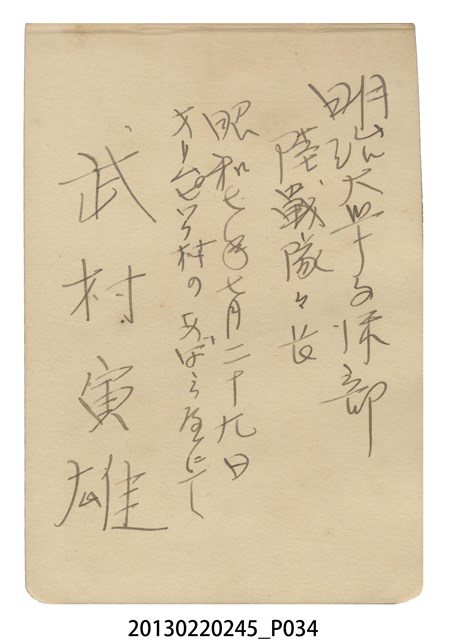 明治大学水泳部
陸戦隊々長
昭和七年七月二十九日
村のあばら屋にて
武村寅雄
20130220245_P034